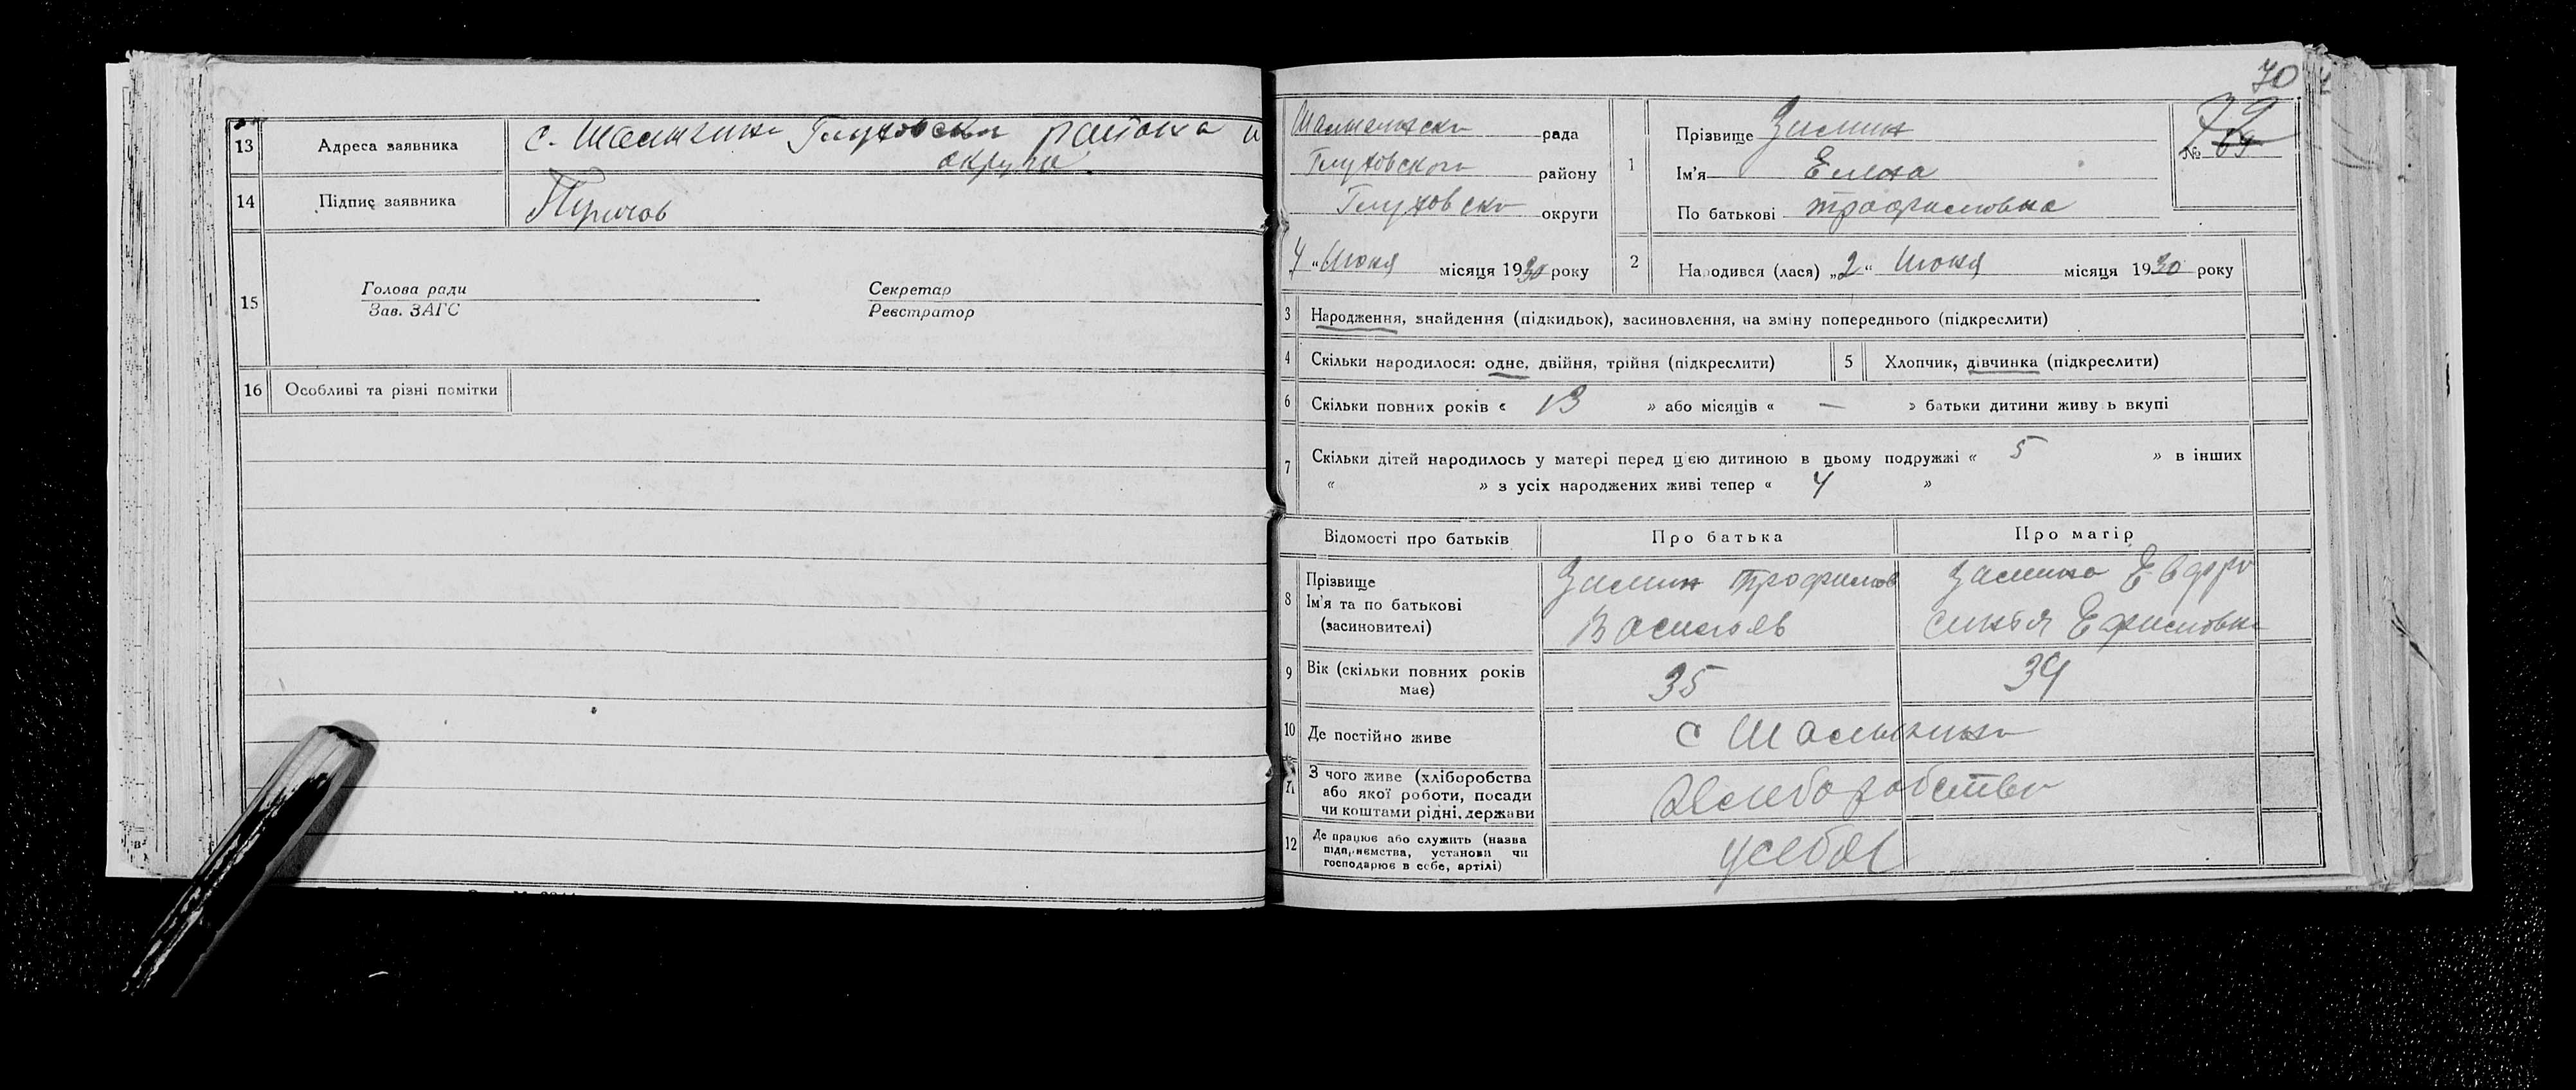 13 Адреса заявника с. Шалигино Глуховско района и
округа.
14 Підпис заявника
15 Голова ради Секретар
Зав. ЗАГС Реєстратор
16 Особливі та різні помітки
70
рада
Глуховского району
Глуховско округи
4 "Июня місяця 1930 року
1 Прізвище Зимин
Ім'я Елена
По батькові Трофимовна
№ 69
72
2 Народився (лася) „2“ Июня місяця 1930 року
3 Народження, знайдення (підкидьок), засиновлення, на зміну попереднього (підкреслити)
4 Скільки народилося: одне, двійня, трійня (підкреслити) 5 Хлопчик, дівчинка (підкреслити)
6 Скільки повних років « 13 » або місяців « — » батьки дитини живу ь вкупі
7 Скільки дітей народилось у матері перед цією дитиною в цьому подружжі « 5 » в інших
« » з усіх народжених живі тепер « 4 »
Відомості про батьків Про батька Про матір
8 Прізвище
Ім'я та по батькові
(засиновителі)
Зимин Трофимов
Василев
Зимина Евфро
синья Ефимовна
9 Вік (скільки повних років
має)
35 34
10 Де постійно живе с Шалыгино
11 З чого живе (хліборобства
або якої роботи, посади
чи коштами рідні, держави
Хлеборобство
12 Де працює або служить (назва
підприємства, установи чи
господарює в себе, артілі)
у себя